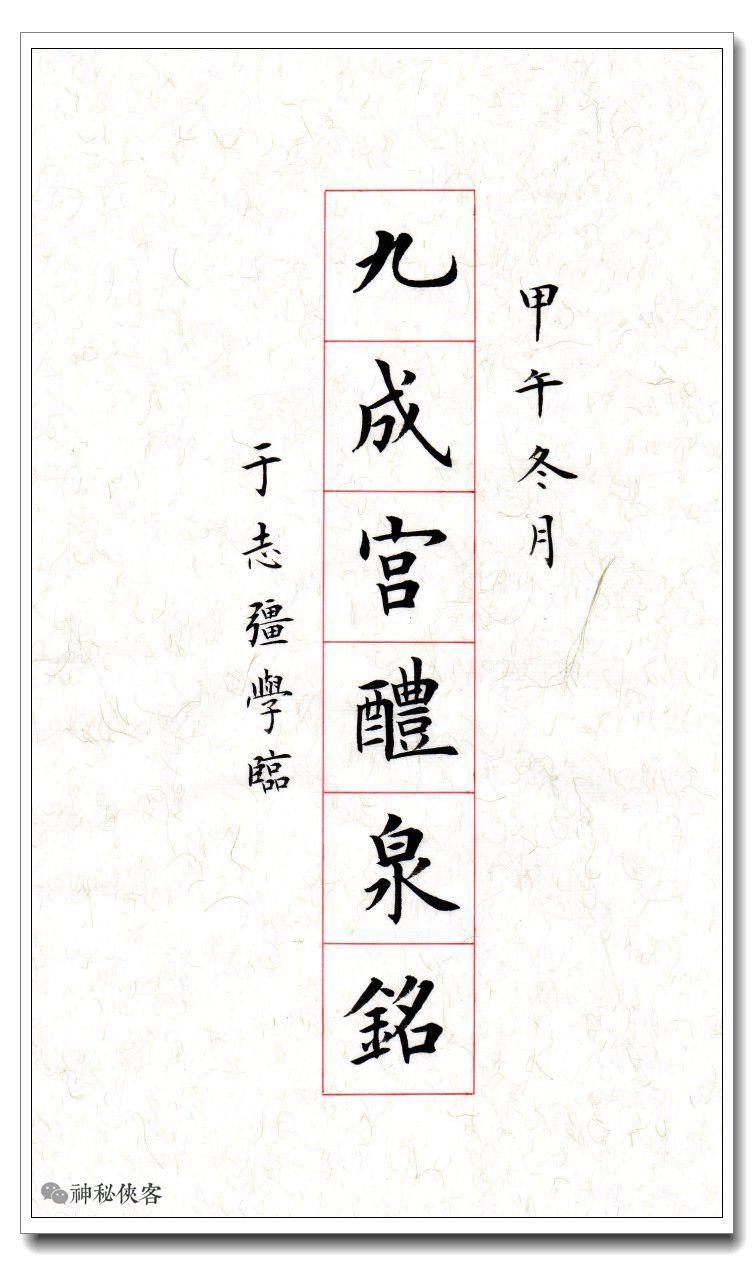 甲午冬月
九成宫醴泉銘
于志彊學臨
神秘俠客